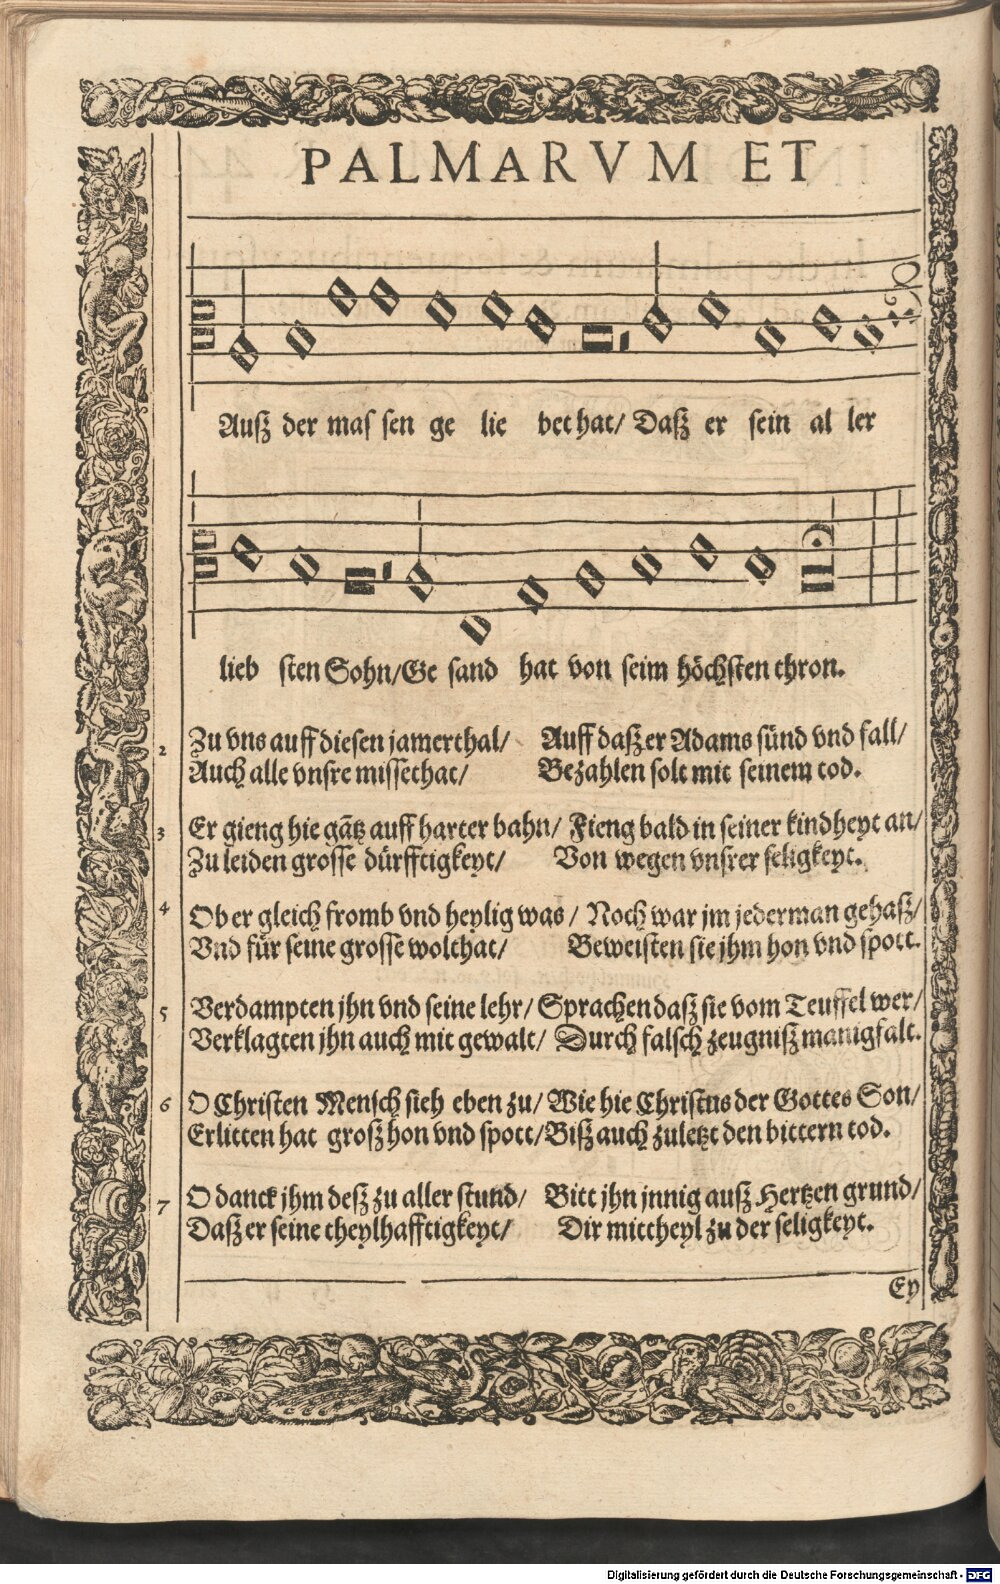 PALMARVM ET
Auß der mas sen ge lie bet hat/ Daß er sein al ler
lieb sten Sohn/Ge sand hat von seim höchsten thron.
2 Zu vns auff diesen jamerthal/ Auff daß er Adams sünd vnd fall/
Auch alle vnsre missethat/ Bezahlen solt mit seinem tod.
3 Er gieng hie gātz auff harter bahn/ Fieng bald in seiner kindheyt an/
Zu leiden grosse dürfftigkeyt/ Von wegen vnsrer seligkeyt.
4 Ob er gleich fromb vnd heylig was/ Noch war jm jederman gehaß/
Vnd für seine grosse wolthat/ Beweisten sie jhm hon vnd spott.
5 Verdampten jhn vnd seine lehr/ Sprachen daß sie vom Teuffel wer/
Verklagten jhn auch mit gewalt/ Durch falsch zeugniß manigfalt.
6 O Christen Mensch sieh eben zu/ Wie hie Christus der Gottes Son/
Erlitten hat groß hon vnd spott/ Biß auch zuletzt den bittern tod.
7 O danck jhm deß zu aller stund/ Bitt jhn jnnig auß Hertzen grund/
Daß er seine theylhafftigkeyt/ Dir mittheyl zu der seligkeyt.
Ey
Digitalisierung gefördert durch die Deutsche Forschungsgemeinschaft - DFG